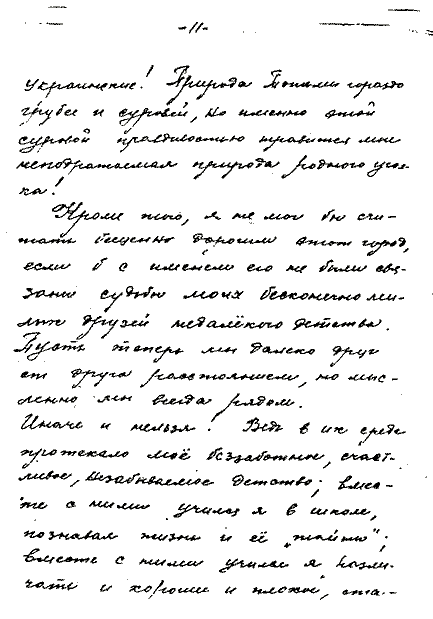 -11-
украинские! Природа Тотьми гораздо
грубее и суровей, но именно этой
суровой правдивостью нравится мне
неподражаемая природа родного угол-
ка!
Кроме того, я не мог бы счи-
тать бесценно дорогим этот город,
если б с именем его не были свя-
заны судьбы моих бесконечно ми-
лых друзей недалёкого детства.
Пусть теперь мы далеко друг
от друга расстоянием, но мыс-
ленно мы всегда рядом.
Иначе и нельзя. Ведь в их среде
протекало моё беззаботное, счаст-
ливое, незабываемое детство; вмес-
те с ними учился я в школе,
познавал жизнь и её „тайны";
вместе с ними учился я разли-
чать и хорошее и плохое, эта-